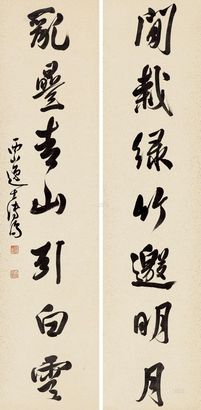 閒栽绿竹邀明月
亂疊青山引白雲
西山逸士溥儒